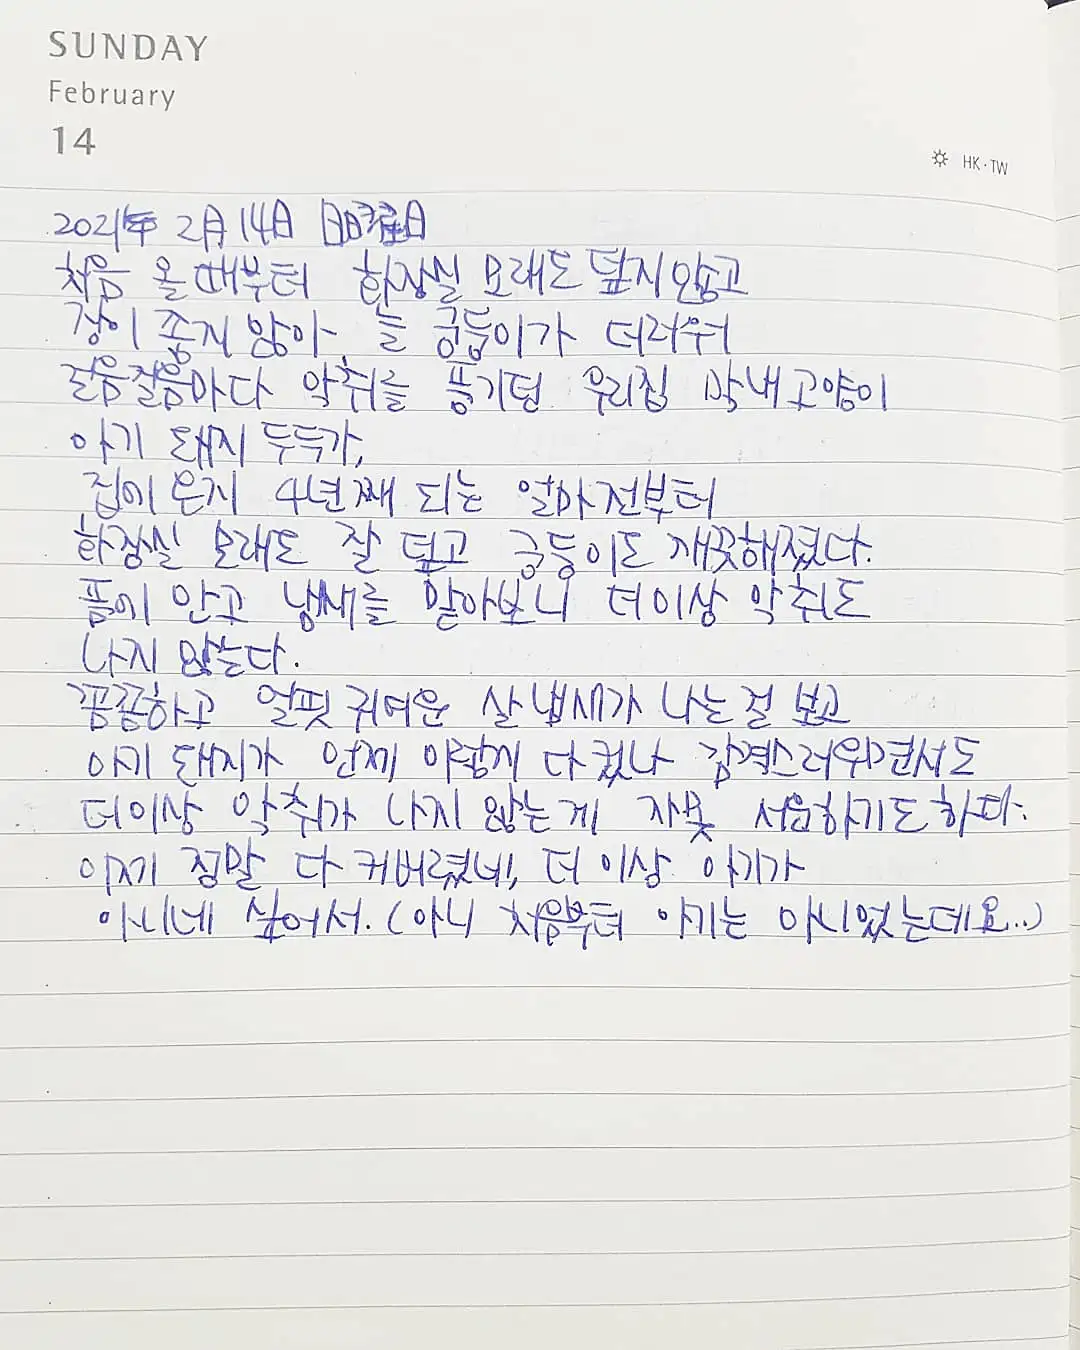 SUNDAY
February
14
HK·TW
2021年 2月 14日 日曜日
처음 올 때부터 화장실 모래도 덮지 않고
장이 좋지 않아 늘 궁둥이가 더러워
걸음걸음마다 악취를 풍기던 우리집 막내 고양이
아기 돼지 두두가,
집에 온지 4년째 되는 얼마전부터
화장실 모래도 잘 덮고 궁둥이도 깨끗해졌다.
품에 안고 냄새를 맡아보니 더이상 악취도
나지 않는다.
꼼꼼하고 얼핏 귀여운 살냄새가 나는 걸 보고
아기 돼지가 언제 이렇게 다 컸나 감격스러워하면서도
더이상 악취가 나지 않는게 자못 서운하기도 하다.
이제 정말 다 커버렸네, 더 이상 아기가
아니네 싶어서. (아니 처음부터 아기는 아니었는데요..)